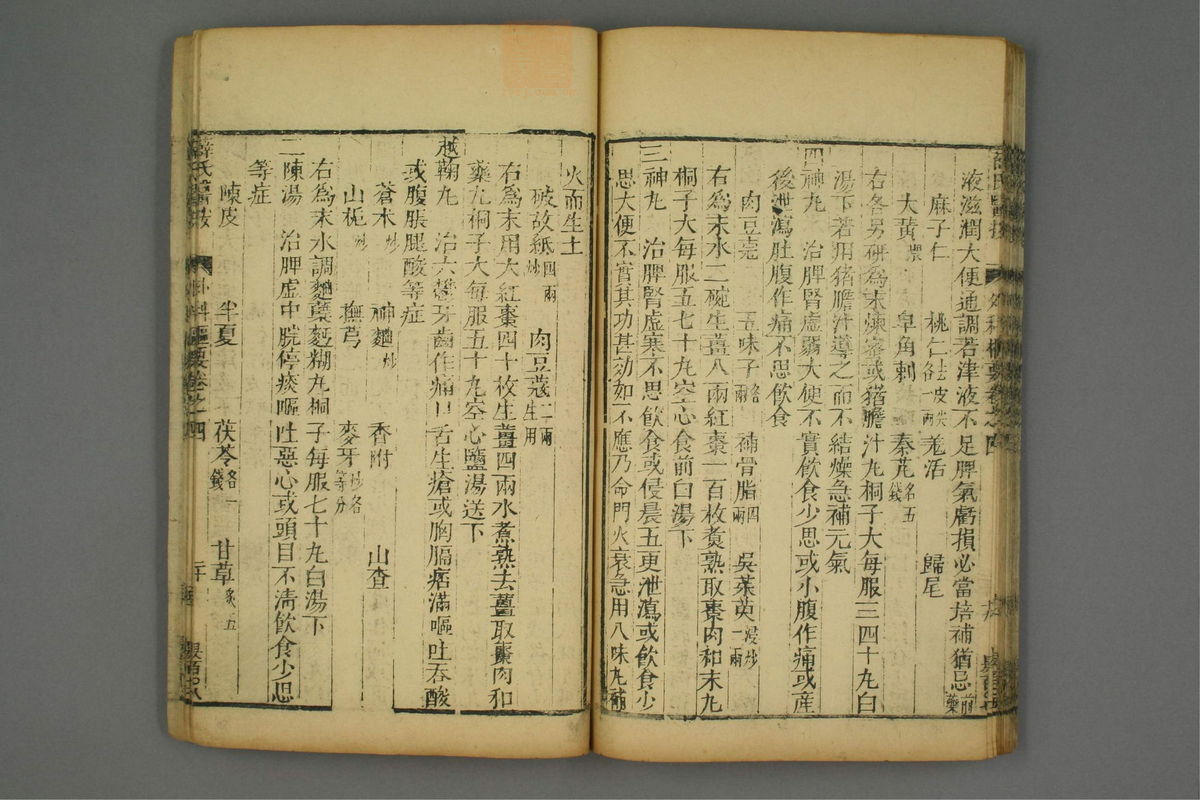 液滋潤大便通調若津液不足脾氣虧損必當培補猶忌前藥
麻子仁 桃仁去皮尖各一兩 羌活 歸尾
大黃煨 皁角剌 秦芃各五錢
右各另研為末煉蜜或猪膽汁丸桐子大每服三四十丸白
湯下若用猪膽汁導之而不結燥急補元氣
四神丸 治脾腎虛弱大便不實飲食少思或小腹作痛或産
後泄瀉肚腹作痛不思飲食
肉豆蔲 五味子各二兩 補骨脂四兩 吳茱萸浸炒一兩
右為末水二碗生薑八兩紅棗一百枚煑熟取棗肉和末丸
桐子大每服五七十丸空心食前白湯下
三神丸 治脾腎虛寒不思飲食或侵晨五更泄瀉或飲食少
思大便不實其功甚効如不應乃命門火衰急用八味丸補
火而生土
破故紙四兩炒 肉豆蔲二兩生用
右為末用大紅棗四十枚生薑四兩水煮熟去薑取棗肉和
藥丸桐子大每服五十丸空心鹽湯送下
越鞠丸 治六鬱牙齒作痛口舌生瘡或胸膈痞滿嘔吐吞酸
或腹脹腿酸等症
蒼朮炒 神麯炒 香附 山查
山梔炒 撫芎 麥牙炒各等分
右為末水調麯蘗麪糊丸桐子每服七十丸白湯下
二陳湯 治脾虛中脘停痰嘔吐惡心或頭目不淸飲食少思
等症
陳皮 半夏 茯苓各一錢 甘草炙五
薛氏醫按 外科樞要卷之四